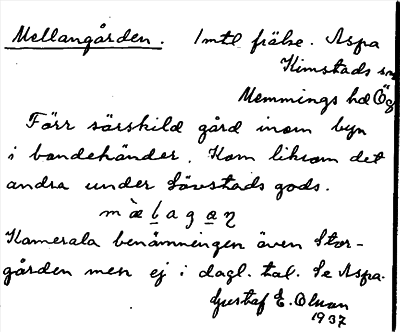 Mellangården. 1 mtl frälse. Aspa
Kimstads sn
Memmings hd Ög
Förr särskild gård inom byn
i bondehänder. Kom liksom det
andra under Lövstads gods.
mæ̀lagaη
Kamerala benämningen även Stor-
gården men ej i dagl. tal. Se Aspa.
Gustaf E. Olsson
1937